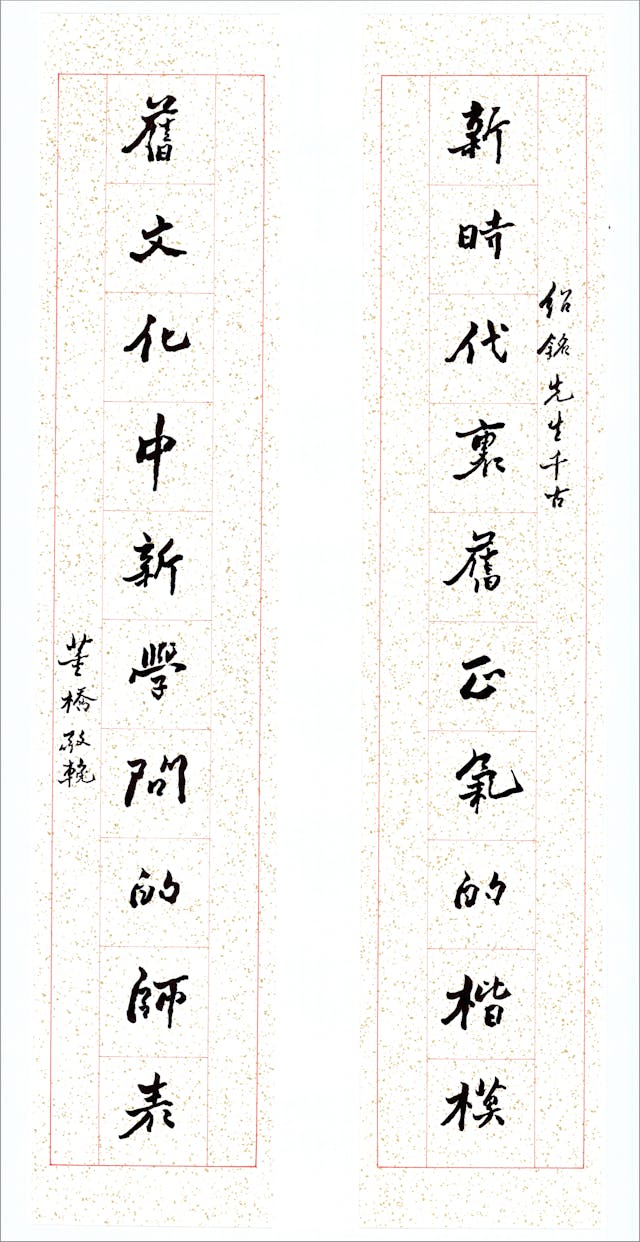 紹銘先生千古
新時代裏舊正氣的楷模
舊文化中新學問的師表
董橋敬輓